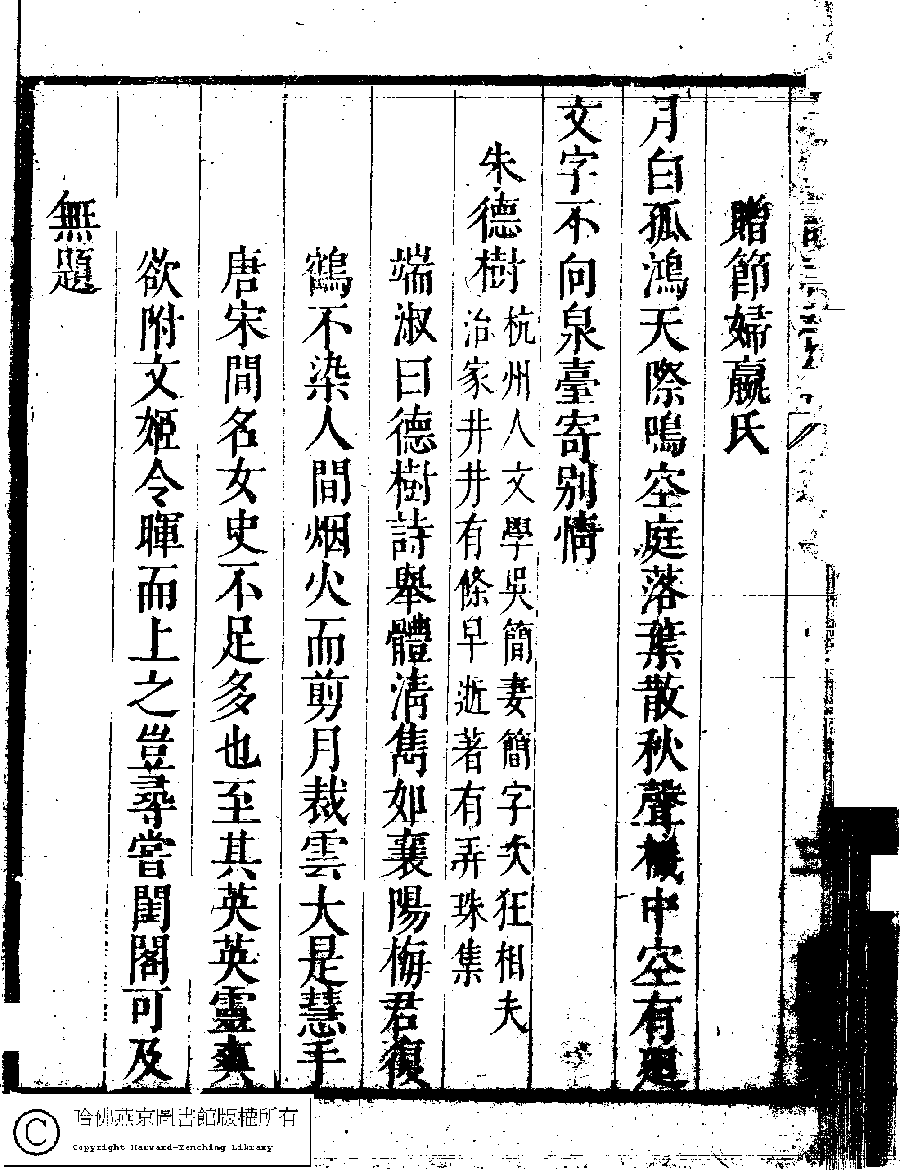 贈節婦嬴氏
月白孤鴻天際鳴空庭落葉散秋聲機中空有廻
文字不向泉臺寄别情
朱德樹
杭州人文學吳簡妻簡字次狂相夫
治家井井有條早逝著有弄珠集
端淑曰德樹詩舉體清雋如襄陽梅君復
鶴不染人間烟火而剪月裁雲大是慧手
唐宋間名女史不足多也至其英英靈爽
欲附文姬令暉而上之豈尋嘗閨閣可及
無題
哈佛燕京圖書館版權所有
Copyright Harvard-Yenching Library